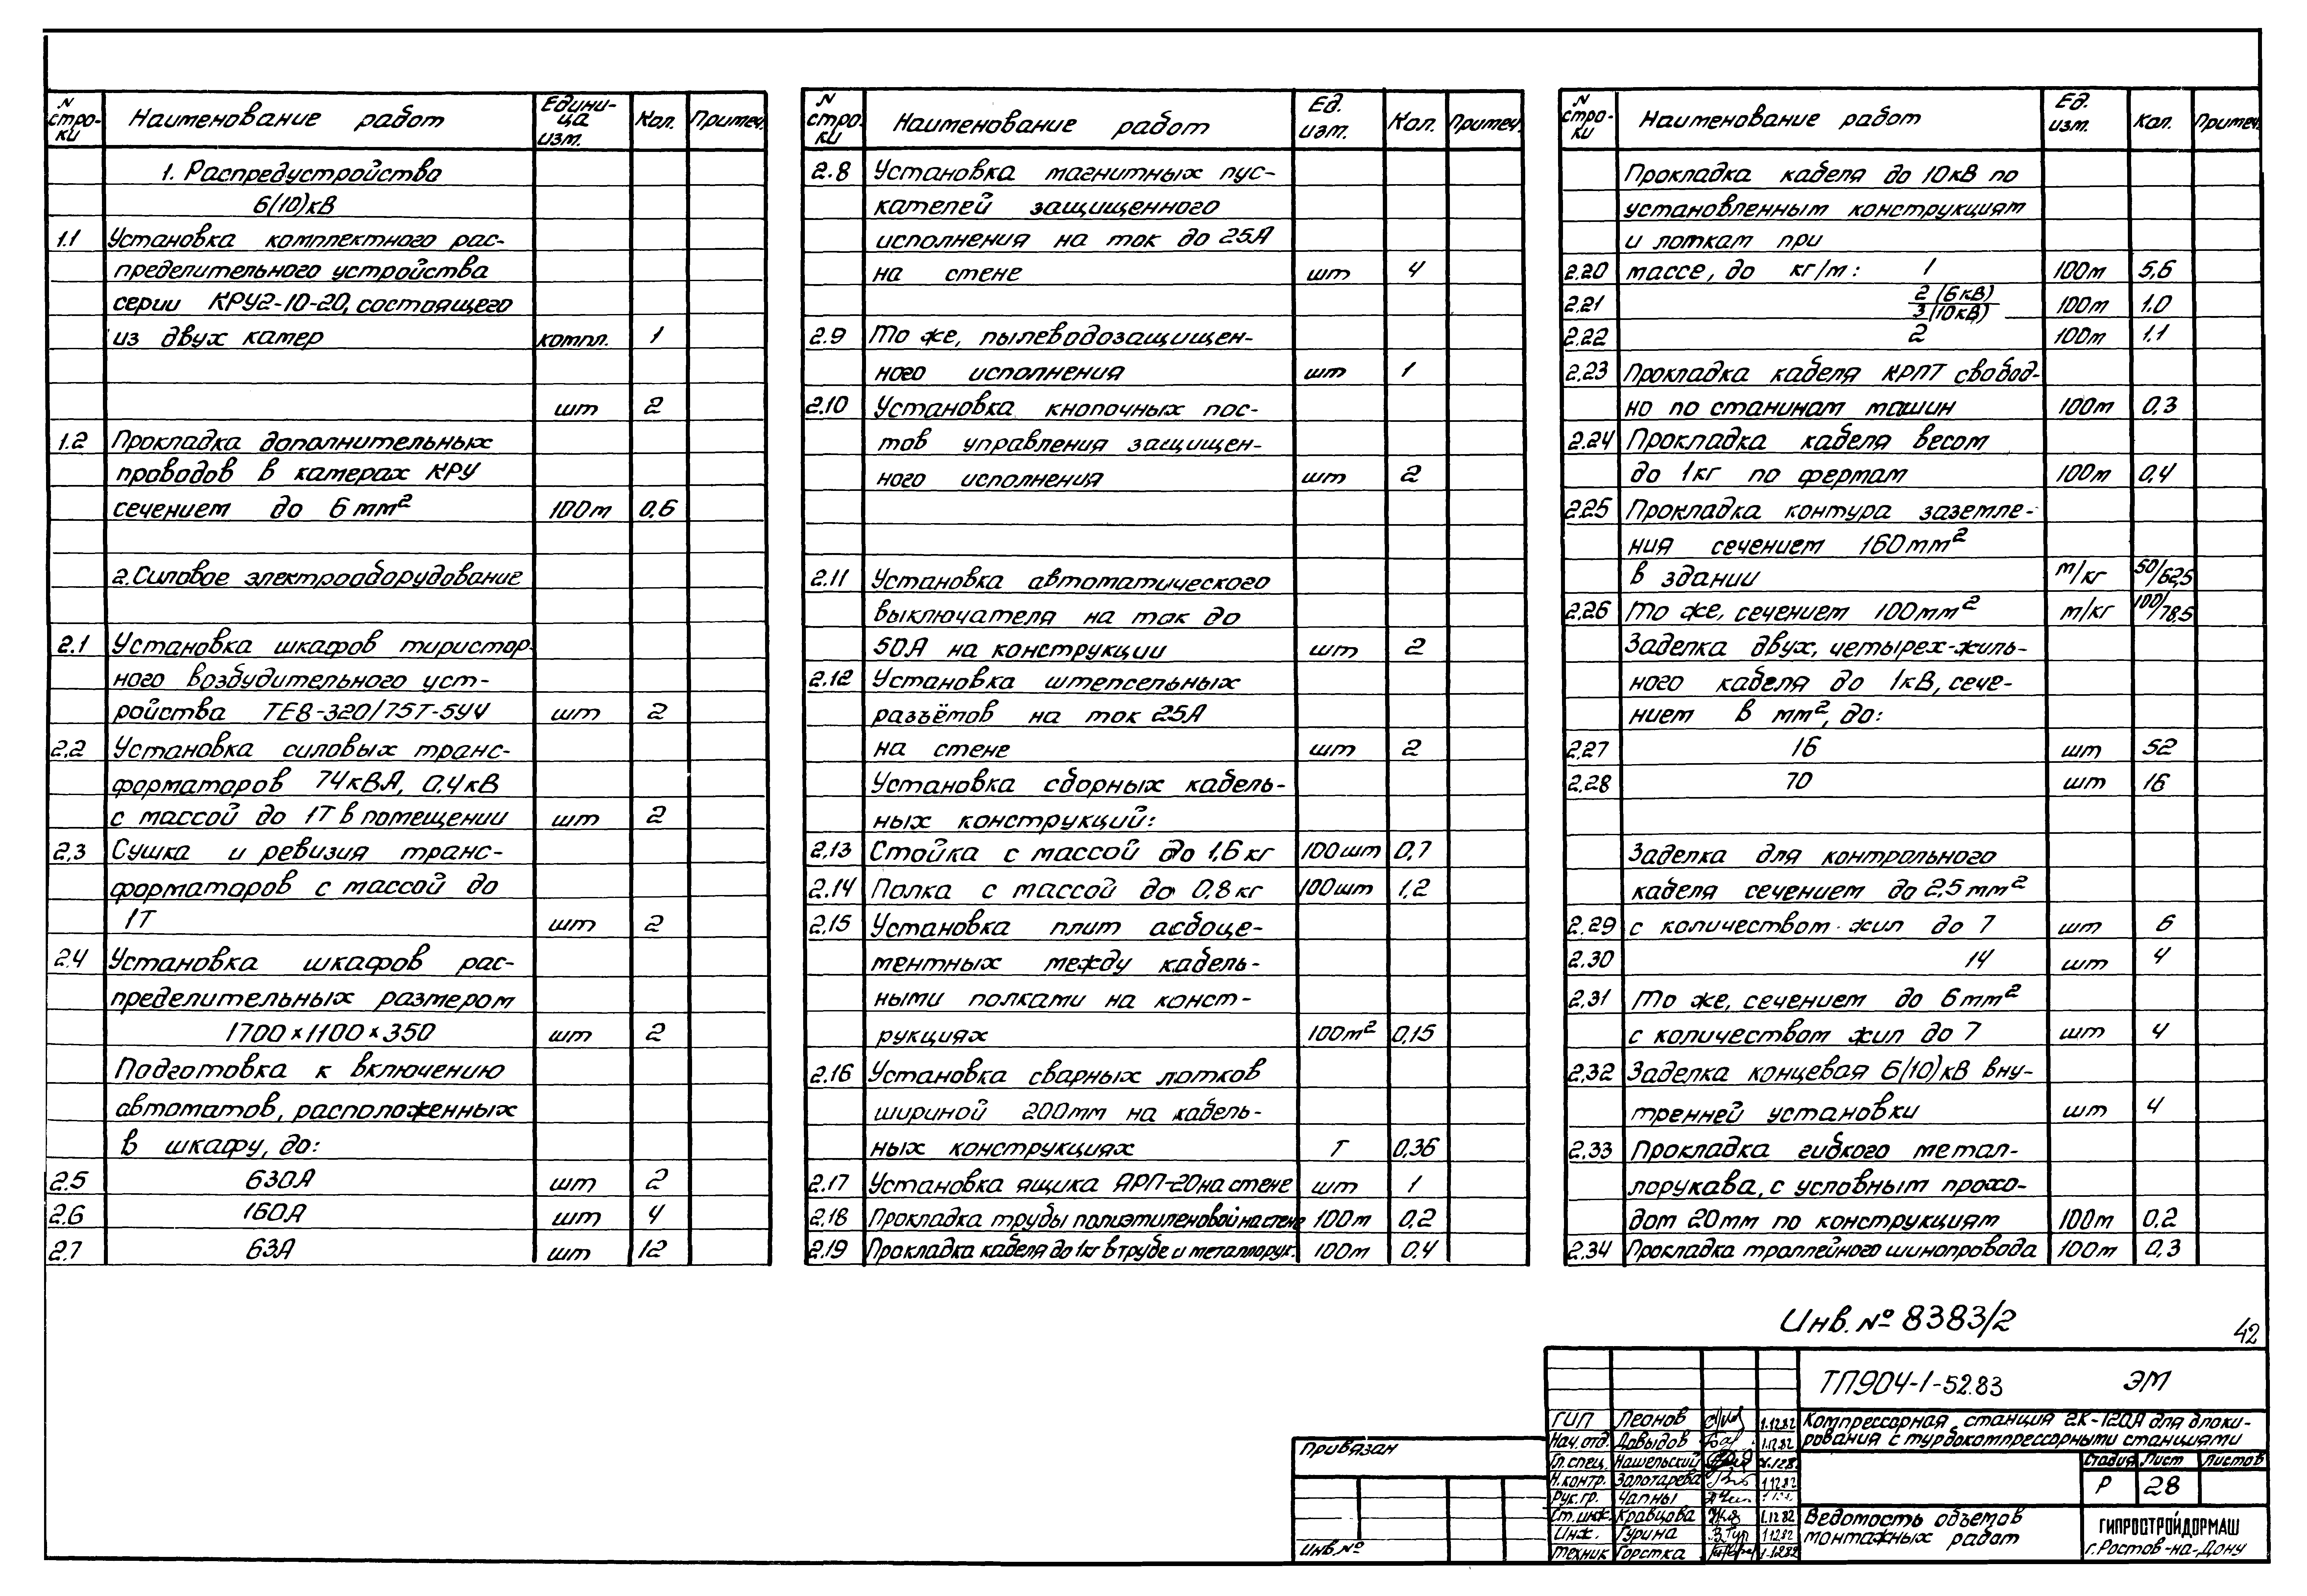 N строки Наименование работ Единица изм. Кол. Примеч.
1. Распредустройства
6(10)кВ
1.1 Установка комплектного рас-
пределительного устройства
серии КРУ2-10-20, состоящего
из двух камер компл. 1
шт 2
1.2 Прокладка дополнительных
проводов в камерах КРУ
сечением до 6мм² 100м 0,6
2. Силовое электрооборудование
2.1 Установка шкафов тиристор-
ного возбудительного уст-
ройства ТЕ8-320/75Т-5У4 шт 2
2.2 Установка силовых транс-
форматоров 74кВА, 0.4кВ
с массой до 1Т в помещении шт 2
2.3 Сушка и ревизия транс-
форматоров с массой до
1Т шт 2
2.4 Установка шкафов рас-
пределительных размером
1700х1100х350 шт 2
Подготовка к включению
автоматов, расположенных
в шкафу, до:
2.5 630А шт 2
2.6 160А шт 4
2.7 63А шт 12
N строки Наименование работ Ед. изм. Кол. Примеч.
2.8 Установка магнитных пус-
кателей защищенного
исполнения на ток до 25А
на стене шт 4
2.9 То же, пылеводозащищен-
ного исполнения шт 1
2.10 Установка кнопочных пос-
тов управления защищен-
ного исполнения шт 2
2.11 Установка автоматического
выключателя на ток до
50А на конструкции шт 2
2.12 Установка штепсельных
разъёмов на ток 25А
на стене шт 2
Установка сборных кабель-
ных конструкций:
2.13 Стойка с массой до 1,6 кг 100шт 0,7
2.14 Полка с массой до 0,8 кг 100шт 1,2
2.15 Установка плит асбоце-
ментных между кабель-
ными полками на конст-
рукциях 100м² 0,15
2.16 Установка сварных лотков
шириной 200мм на кабель-
ных конструкциях Т 0,36
2.17 Установка ящика ЯРП-20 на стене шт 1
2.18 Прокладка трубы полиэтиленовой на стене 100м 0,2
2.19 Прокладка кабеля до 1кг в трубе и металлорук. 100м 0,4
N строки Наименование работ Ед. изм. Кол. Примеч.
Прокладка кабеля до 10кВ по
установленным конструкциям
и лоткам при
2.20 массе, до кг/м: 1 100м 5,6
2.21 2 (6кВ) / 3 (10кВ) 100м 1.0
2.22 2 100м 1.1
2.23 Прокладка кабеля КРПТ свобод-
но по станинам машин 100м 0,3
2.24 Прокладка кабеля весом
до 1кг по фермам 100м 0,4
2.25 Прокладка контура заземле-
ния сечением 160мм²
в здании м/кг 50/62,5
2.26 То же, сечением 100мм² м/кг 100/78,5
Заделка двух, четырех-жиль-
ного кабеля до 1кВ, сече-
нием в мм², до:
2.27 16 шт 52
2.28 70 шт 16
Заделка для контрольного
кабеля сечением до 2,5мм²
2.29 с количеством жил до 7 шт 6
2.30 14 шт 4
2.31 То же, сечением до 6мм²
с количеством жил до 7 шт 4
2.32 Заделка концевая 6(10)кВ вну-
тренней установки шт 4
2.33 Прокладка гибкого метал-
лорукава, с условным прохо-
дом 20мм по конструкциям 100м 0,2
2.34 Прокладка троллейного шинопровода 100м 0,3
Инв. № 8383/2
42
ТП904-1-52.83 ЭМ
ГИП Леонов 1.12.82
Нач. отд. Давыдов 1.12.82
Гл. спец. Нашельский
Н. контр. Золотарева 1.12.82
Рук. гр. Чапны
Ст. инж. Кравцова 1.12.82
Инж. Гурина 1.12.82
Техник Горстка 1.12.82
Компрессорная станция 2К-120А для блоки-
рования с турбокомпрессорными станциями
Стадия Лист Листов
Р 28
Ведомость объемов
монтажных работ
ГИПРОСТРОЙДОРМАШ
г. Ростов-на-Дону
Привязан
Инв. №